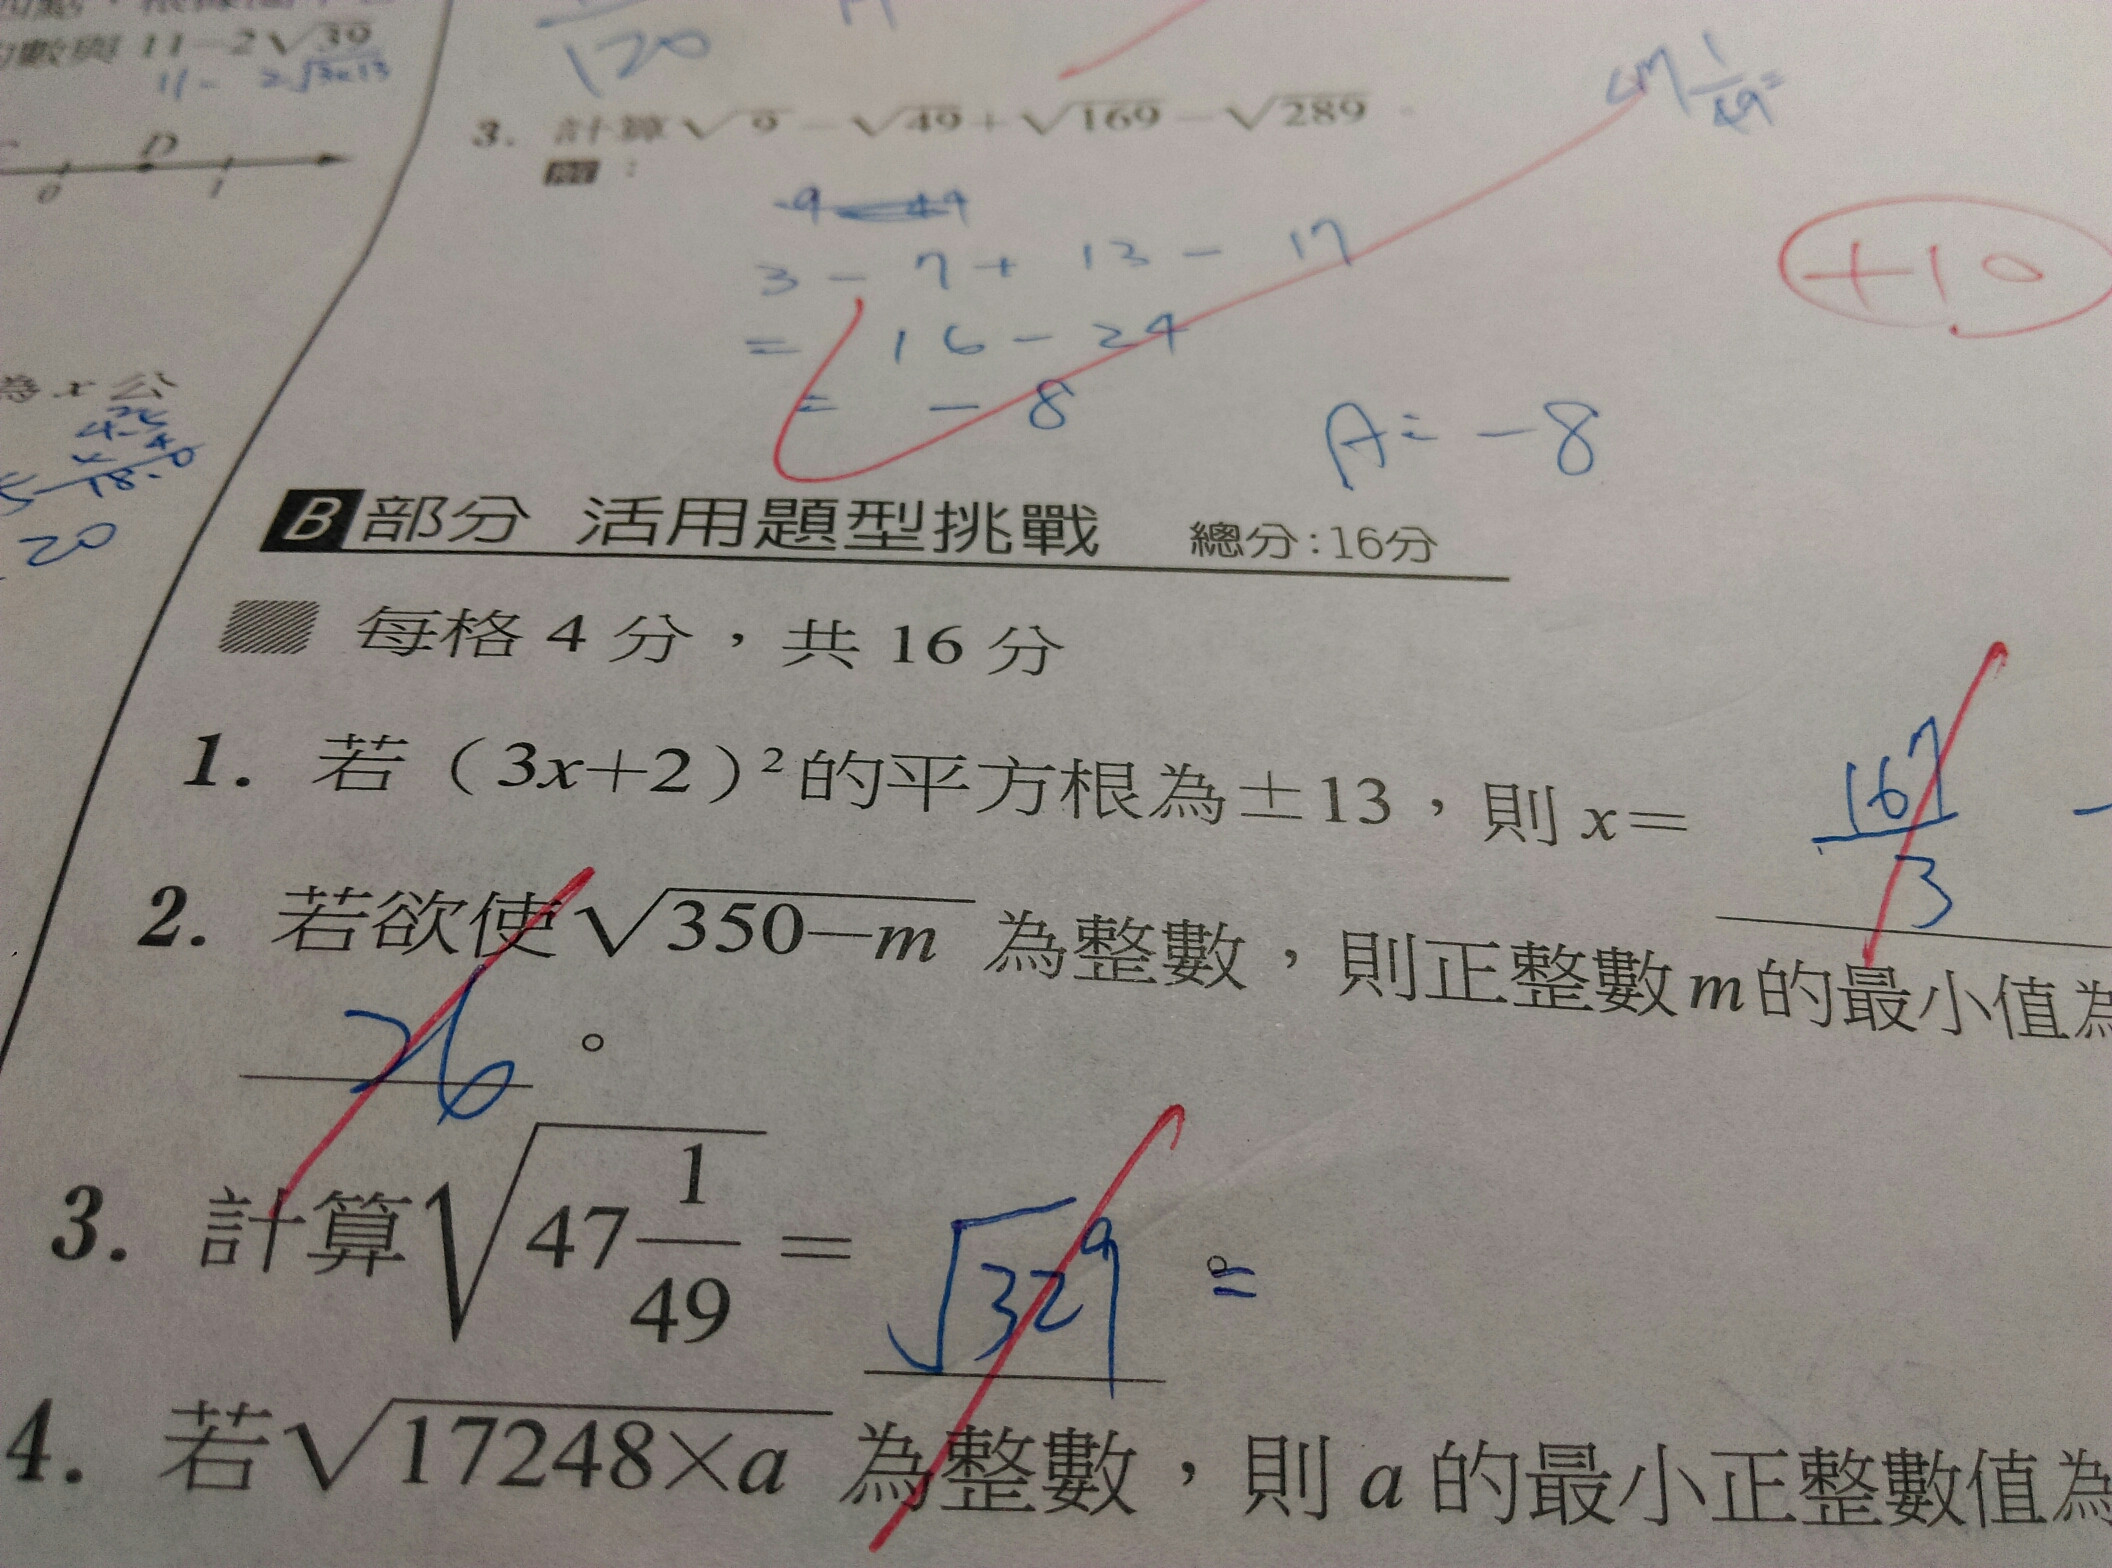 數與 11-2√39
11- 2√3x13
D
0 1
為 x 公
20
120
3. 計算√9-√49+√169-√289
1/49=
3-7+13-17
=16-24
=-8
A=-8
+10
B部分 活用題型挑戰 總分:16分
每格 4 分,共 16 分
1. 若(3x+2)²的平方根為±13,則 x= 167/3
2. 若欲使√350-m 為整數,則正整數m的最小值為
26。
3. 計算√47 1/49 = √329。=
4. 若√17248×a 為整數,則 a 的最小正整數值為